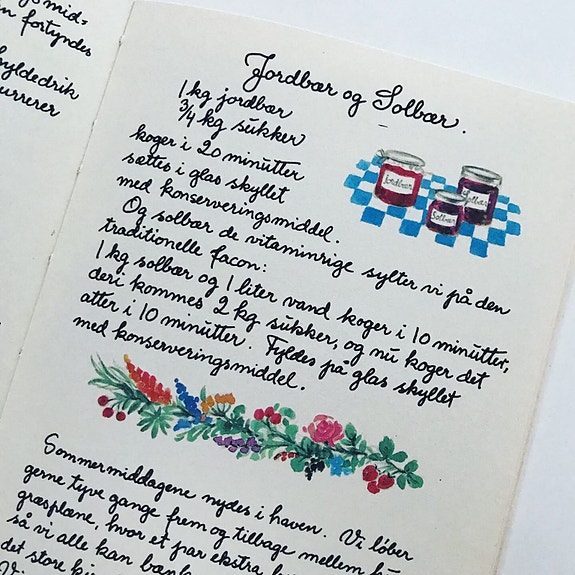 mid=
fortyndes
hyldedrik
urrerer
Jordbær og Solbær.
1 kg jordbær
3/4 kg sukker
koger i 20 minutter
sættes i glas skyllet
med konserveringsmiddel.
Og solbær de vitaminrige sylter vi på den
traditionelle facon:
1 kg solbær og 1 liter vand koger i 10 minutter,
deri kommes 2 kg sukker, og nu koger det
atter i 10 minutter. Fyldes på glas skyllet
med konserveringsmiddel.
Jordbær
Solbær
Solbær
Sommermiddagene nydes i haven. Vi løber
gerne tyve gange frem og tilbage mellem
græsplæne, hvor et par ekstra
så vi alle kan bænk
det store